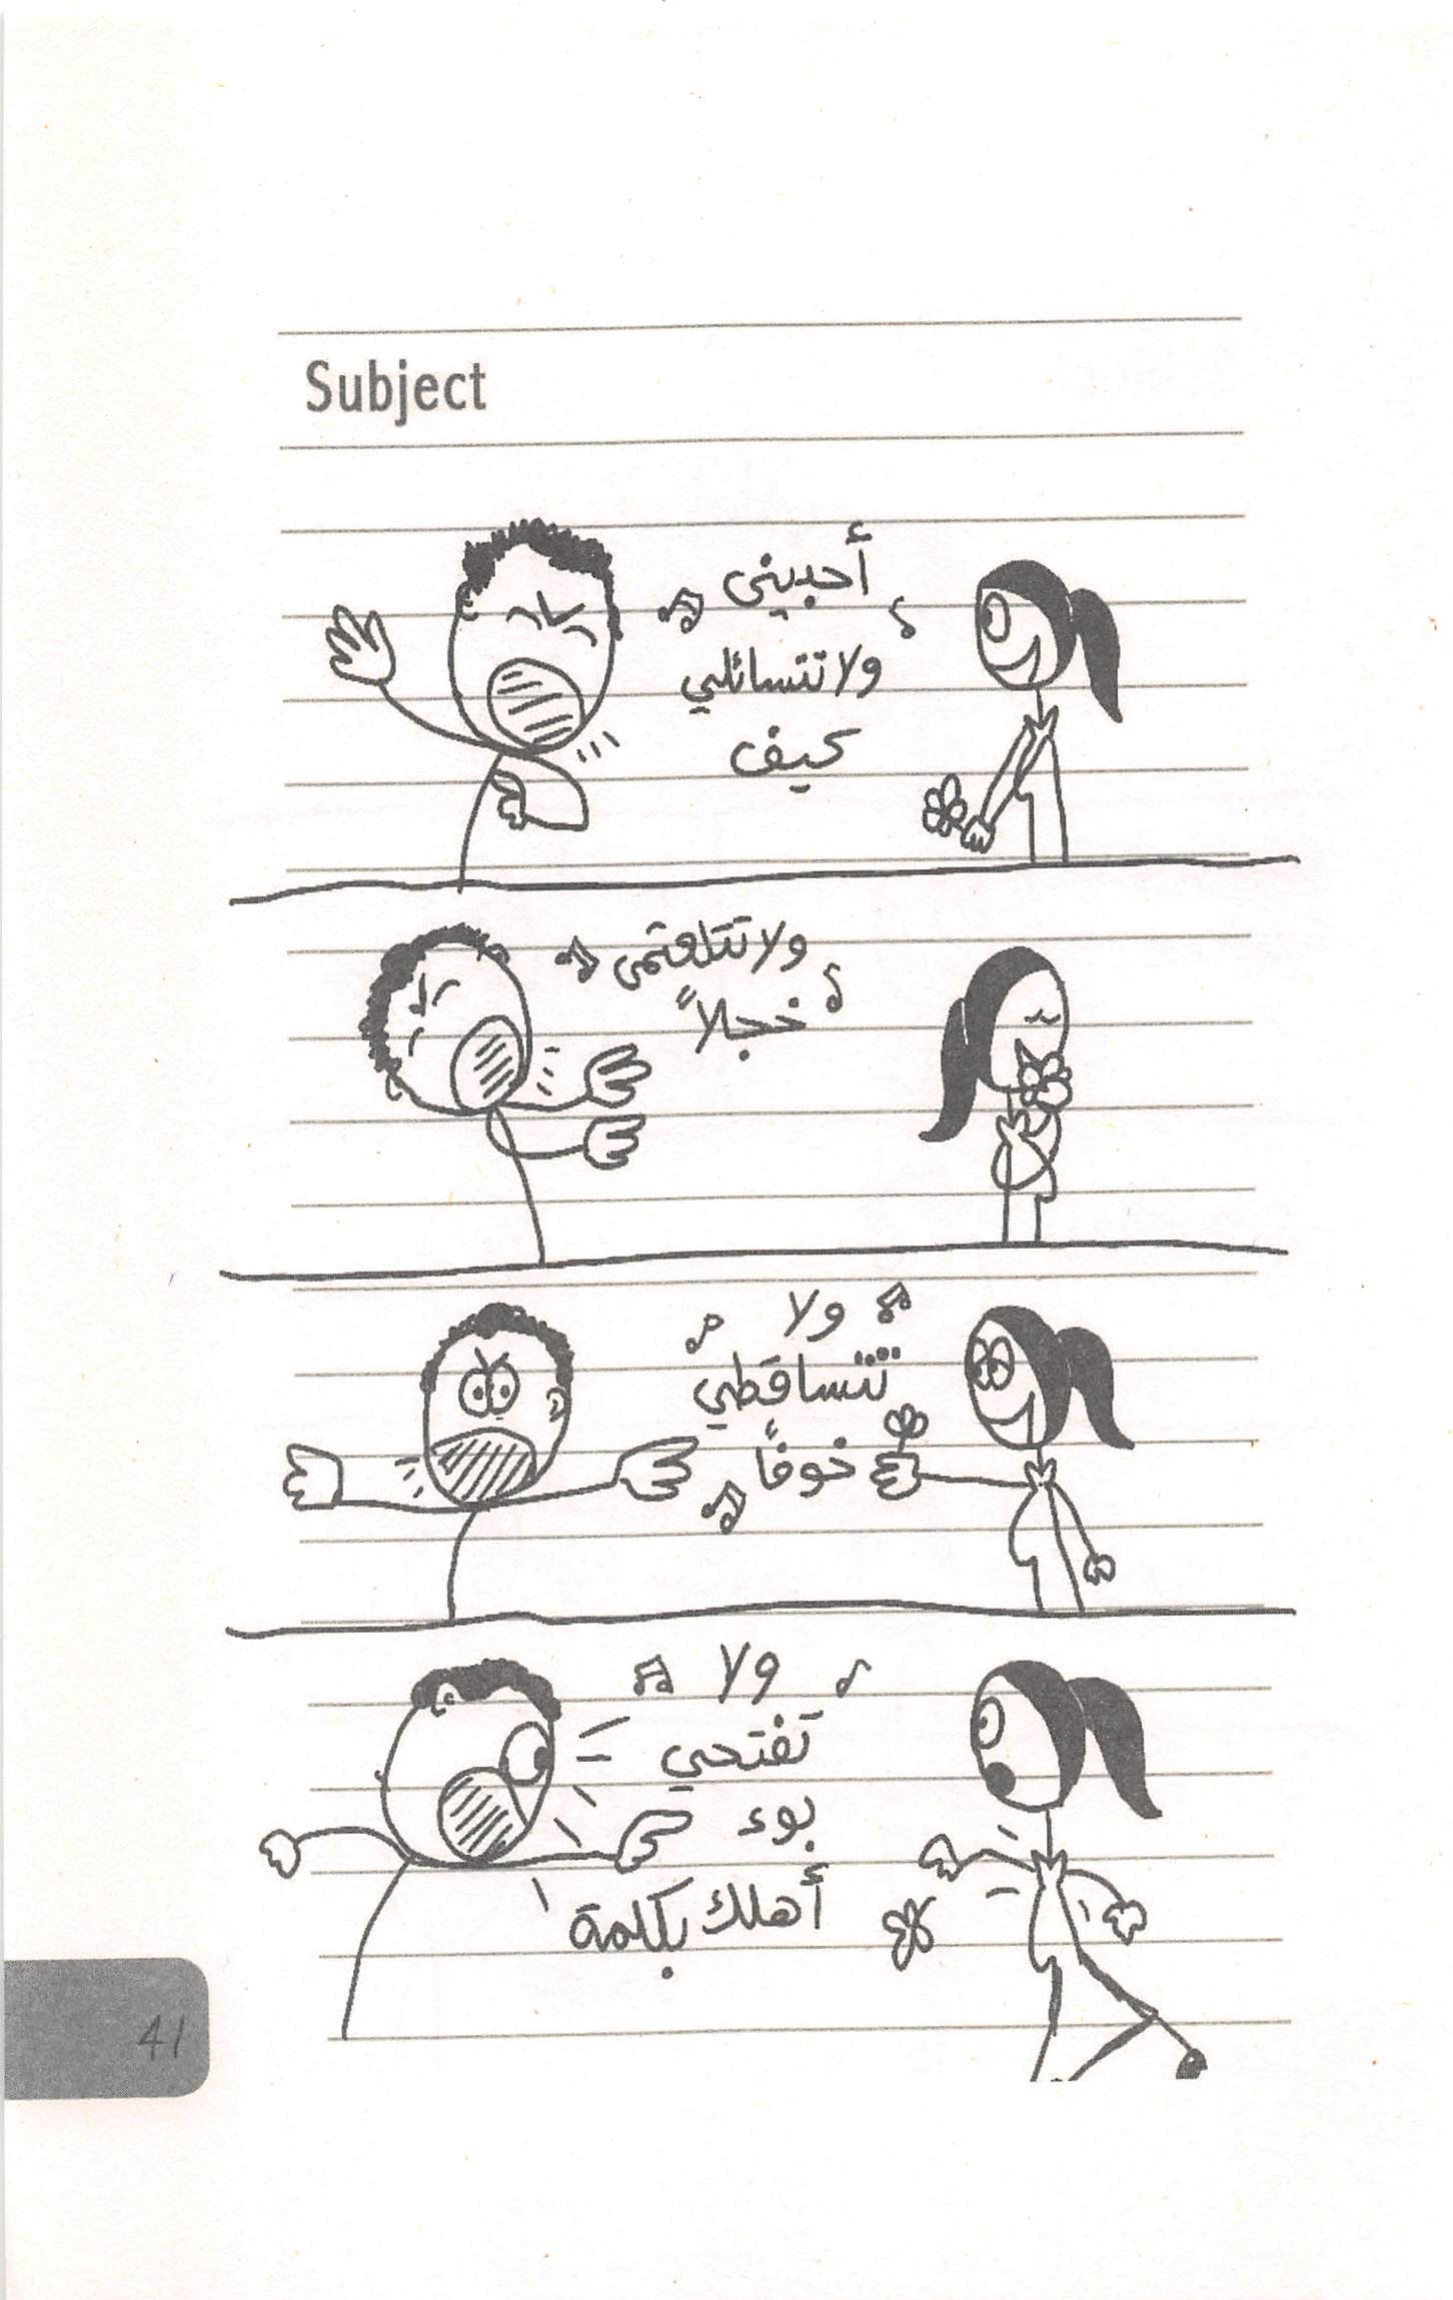 Subject
أحبينى
ولا تتسائلي
كيف
ولا تتلعثمى
خجلاً
ولا
تتساقطي
خوفاً
ولا
تفتحي
بوء
أهلك بكلمة
41